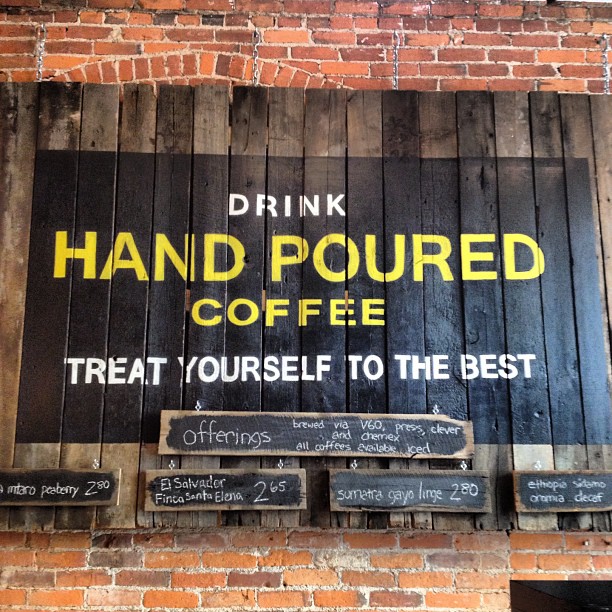 DRINK
HAND POURED
COFFEE
TREAT YOURSELF TO THE BEST
offerings
brewed via V60, press, clever
and chemex
all coffees available iced
mtaro peaberry 2.80
El Salvador
Finca Santa Elena 2.65
sumatra gayo linge 2.80
ethiopia sidamo
oromia decaf